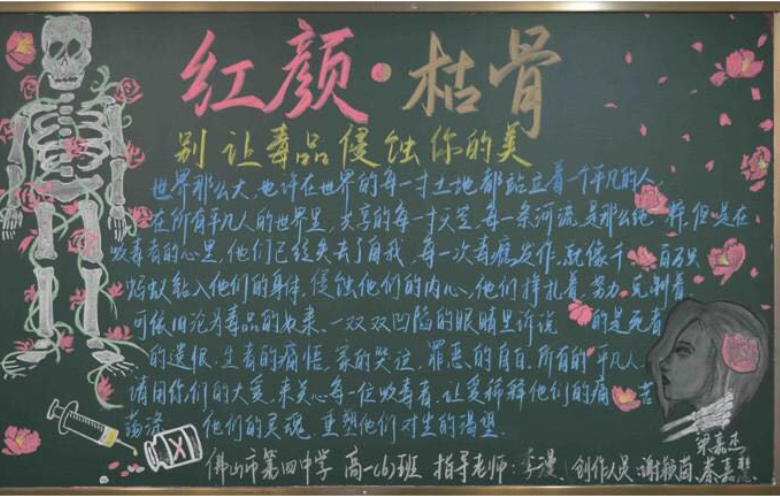 红颜·枯骨
别让毒品侵蚀你的美
世界那么大,也许在世界的每一寸土地都站立着一个平凡的人,
在所有平凡人的世界里,共享的每一寸天空,每一条河流,是那么纯 粹,但是在
吸毒者的心里,他们已经失去了自我,每一次毒瘾发作,就像千 百只
蚂蚁钻入他们的身体,侵蚀他们的内心,他们挣扎着,努力 克制着
可依旧沦为毒品的奴隶.一双双凹陷的眼睛里诉说 的是死者
的遗恨.生者的痛悟,家的哭泣,罪恶的自白.所有的 平凡人,
请用你们的大爱,来关心每一位吸毒者,让爱稀释他们的痛 苦
荡涤 他们的灵魂.重塑他们对生的渴望.
梁嘉杰
佛山市第四中学 高一(6)班 指导老师:李漫 创作人员 谢颖茵 秦嘉慧
X